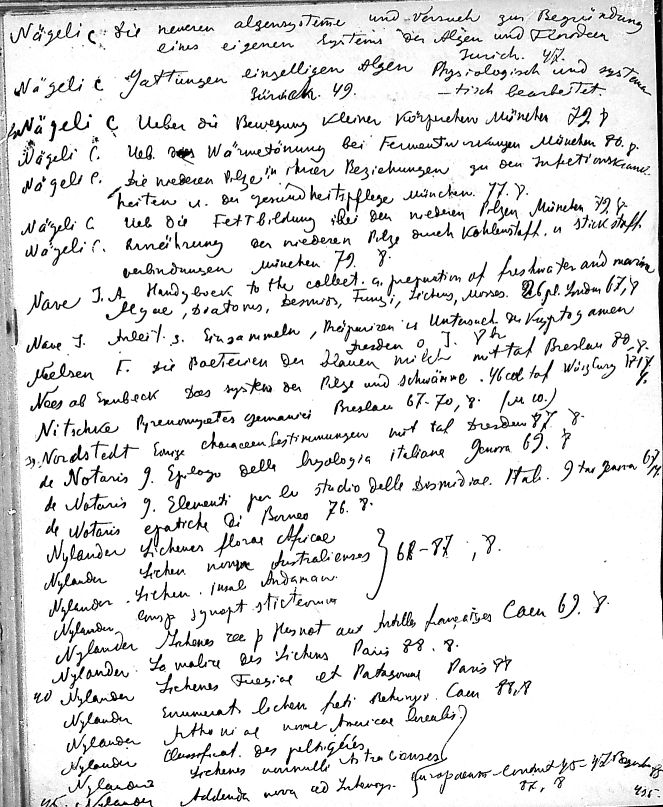 Nägeli C. Die neueren Algensysteme und Versuch zur Begründung
eines eigenen Systems der Algen und Florideen
Zurich. 47.
Nägeli C Gattungen einzelligen Algen Physiologisch und systema
Zürich. 49. –tisch bearbeitet
Nägeli C Ueber die Bewegung kleiner Körperchen München 79 8
Nägeli C. Ueb. Wärmetönung bei Fermentwirkungen München 80. 8.
Nägeli C. Die niederen Pilze in ihrer Beziehungen zu den Infectionskrank.
heiten u. der gesundheitspflege München. 77. 8.
Nägeli C. Ueb die Fettbildung bei den niederen Pilzen München 79. 8.
Nägeli C. Ernährung der niederen Pilze durch Kohlenstoff. u stickstoff.
verbindungen München 79. 8.
Nave J. A. Handybook to the collect. a. preparation of freshwater and marine
Algae, Diatoms, Desmids, Fungi, Lichens, Mosses. 26 pl. London 67, 8
Nave J. Anleit. z. Einsammeln, Präpariren u Untersuch der Kryptogamen
Dresden o. J. 8
Neelsen F. Die Bacterien der blauen milch mit taf Breslau 80, 8.
Nees ab Esenbeck Das system der Pilze und Schwämme. 46 col taf Würzburg 1817
Nitschke Pyrenomycetes germanici Breslau 67-70, 8.
Nordstedt Einige characeenbestimmungen mit taf Dresden 8.
de Notaris g. Epilogo della briologia italiana genova 69. 8
de Notaris g. Elementi per lo studio delle Desmidiac. Ital. 9 tav genova 67
de Notaris epatiche di Borneo 76. 8.
Nylander Lichenes florae Africae
Nylander Lichen novae Australienses } 68-87, 8.
Nylander. Lichen. insul Andaman.
Nylander consp synopt sticteorum
Nylander Lichenes rec p Husnot aux Antilles françaises Caen 69. 8.
Nylander. La malice des Lichens Paris 88. 8.
40 Nylander Lichenes Fuegiae et Patagoniae Paris 88
Nylander Enumerat lichen freti Behringii. Caen 88, 8
Nylander Arthoniae novae Americae borealis
Nylander Classificat. des peltigérés
Nylander Lichenes nonnulli Australienses
Nylander Addenda nova ad Lichenogr. europaeam Contin 45-47
87, 8